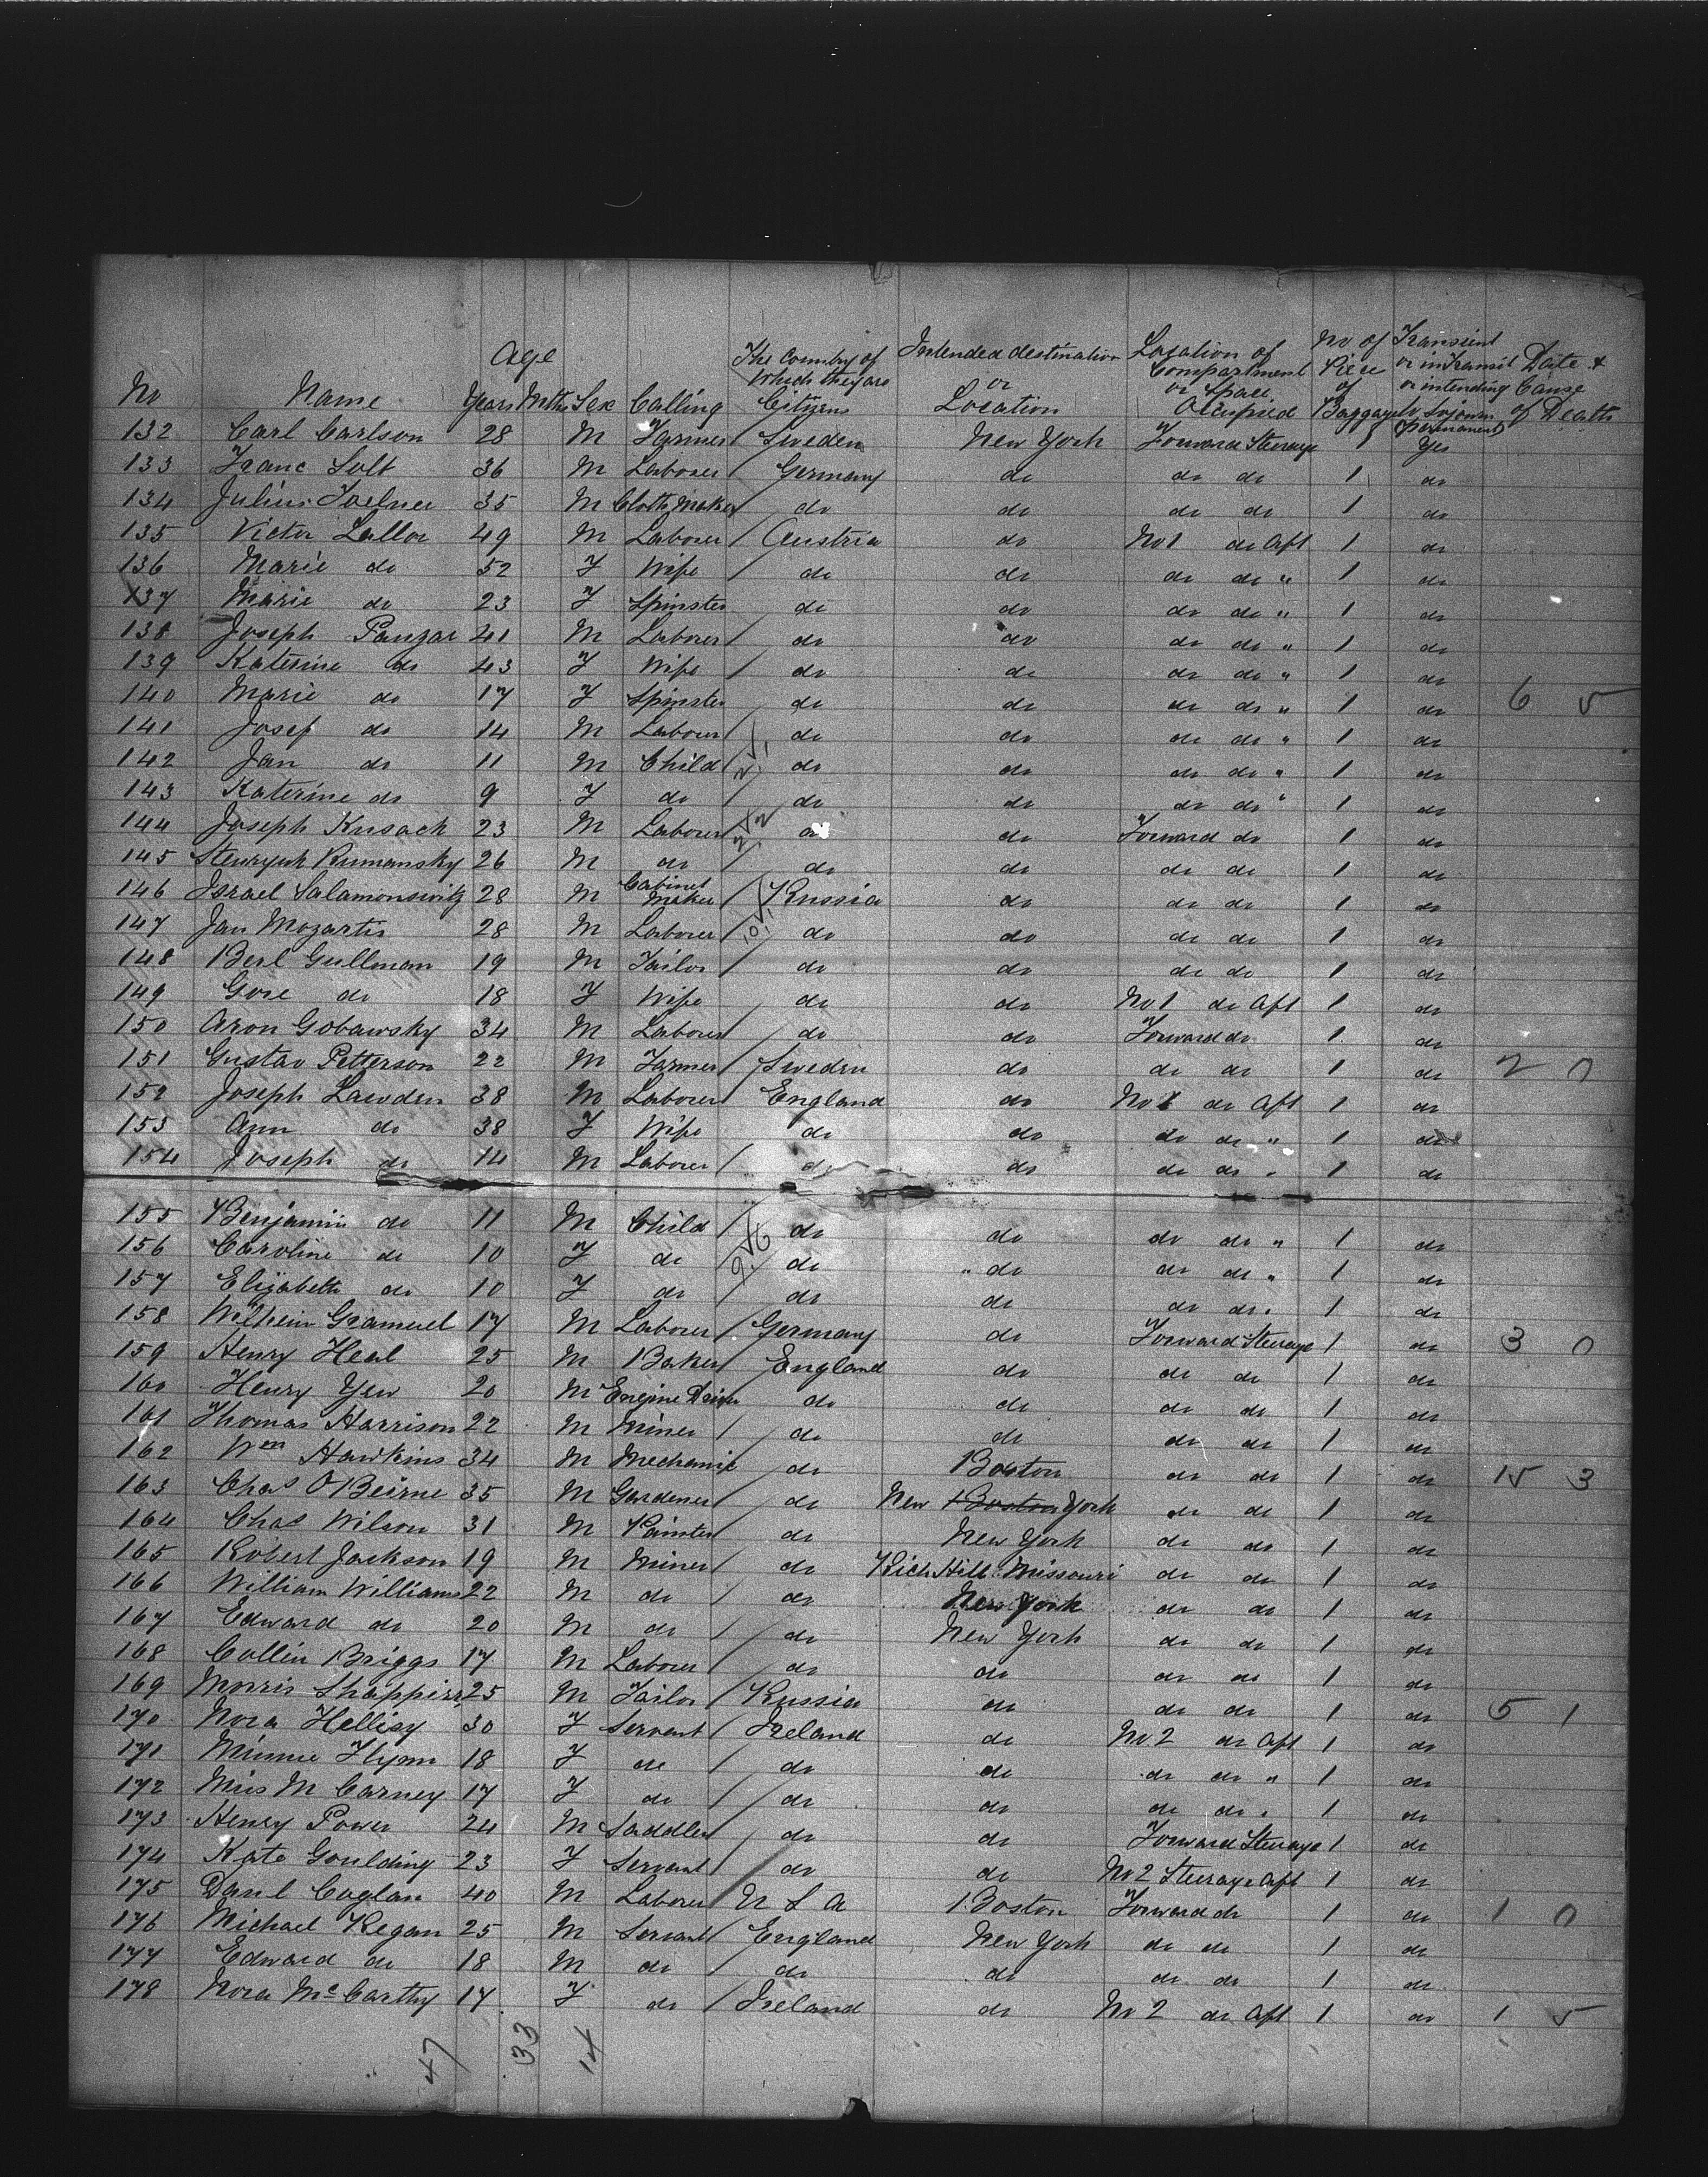 Age
No Name Years Mths Sex Calling The Country of Which they are Citizens Intended destination or Location Location of Compartment or Space Occupied No of Piece of Baggage Transient or in Transit or intending Sojourn Permanent Date & Cause of Death
132 Carl Carlson 28 M Farmer Sweden New York Forward Steerage 1 Yes
133 Franc Solt 36 M Laborer Germany do do do 1 do
134 Julius 35 M Cloth Maker do do do do 1 do
135 Victor Lallor 49 M Laborer Austria do No 1 do Aft 1 do
136 Marie do 52 F Wife do do do do " 1 do
137 Marie do 23 F Spinster do do do do " 1 do
138 Joseph Panzar 41 M Laborer do do do do " 1 do
139 Katerine do 43 F Wife do do do do " 1 do
140 Marie do 17 F Spinster do do do do " 1 do 6 5
141 Josef do 14 M Laborer do do do do " 1 do
142 Jan do 11 M Child do do do do " 1 do
143 Katerine do 9 F do do do do do " 1 do
144 Joseph Kusack 23 M Laborer do do Forward do 1 do
145 Rumansky 26 M do do do do do 1 do
146 Israel Salamonswitz 28 M Cabinet Maker Russia do do do 1 do
147 Jan Mozartis 28 M Laborer do do do do 1 do
148 Berl Gullman 19 M Tailor do do do do 1 do
149 Gose do 18 F Wife do do No 1 do Aft 1 do
150 Aron Gobawsky 34 M Laborer do do Forward do 1 do
151 Gustav Petterson 22 M Farmer Sweden do do do 1 do 2 0
152 Joseph Lawden 38 M Laborer England do No 1 do Aft 1 do
153 Ann do 38 F Wife do do do do " 1 do
154 Joseph do 14 M Laborer do do do do " 1 do
155 Benjamin do 11 M Child do do do do " 1 do
156 Caroline do 10 F do do " do do do " 1 do
157 Elizabeth do 10 F do do do do do " 1 do
158 Wilhelm Gramuel 17 M Laborer Germany do Forward Steerage 1 do 3 0
159 Henry Heal 25 M Baker England do do do 1 do
160 Henry Yew 20 M Engine Driver do do do do 1 do
161 Thomas Harrison 22 M Miner do do do do 1 do
162 Wm Hawkins 34 M Mechanic do Boston do do 1 do 15 3
163 Chas O'Beirne 35 M Gardener do New Boston York do do 1 do
164 Chas Wilson 31 M Painter do New York do do 1 do
165 Robert Jackson 19 M Miner do Rich Hill Missouri do do 1 do
166 William Williams 22 M do do New York do do 1 do
167 Edward do 20 M do do New York do do 1 do
168 Collin Briggs 17 M Laborer do do do do 1 do
169 Morris Shappiro 25 M Tailor Russia do do do 1 do 5 1
170 Nora Hellisy 30 F Servant Ireland do No. 2 do Aft 1 do
171 Minnie Flynn 18 F do do do do do " 1 do
172 Miss M Carney 17 F do do do do do " 1 do
173 Henry Power 24 M Saddler do do Forward Steerage 1 do
174 Kate Goulding 23 F Servant do do No 2 Steerage Aft 1 do
175 Danl Coglan 40 M Laborer U S A Boston Forward do 1 do 1 0
176 Michael Regan 25 M Servant England New York do do 1 do
177 Edward do 18 M do do do do do 1 do
178 Nora McCarthy 17 F do Ireland do No 2 do Aft 1 do 1 5
47 33 14